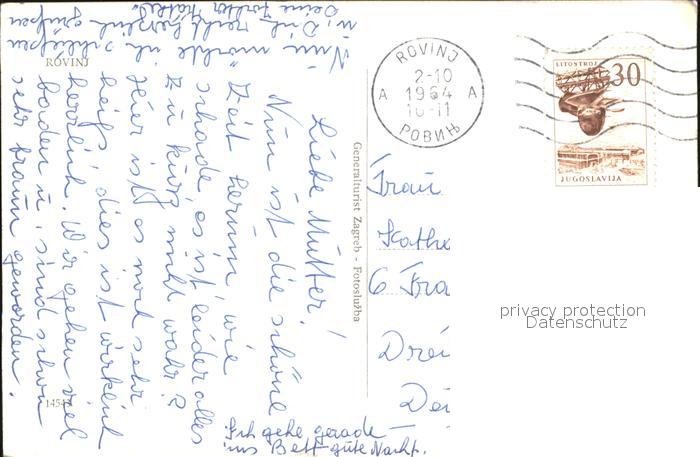 ROVINJ
Liebe Mutter!
Nun ist die schöne
Zeit herum, wie
schade, es ist leider alles
zu kurz, nicht wahr?
Hier ist es noch sehr
heiß, dies ist wirklich
herrlich. Wir gehen viel
baden u. sind schon
sehr braun geworden.
Nun möchte ich schließen
u. Dich recht herzlich grüßen
Deine
Ich gehe gerade
ins Bett gute Nacht.
14547
Generalturist Zagreb - Fotoslužba
ROVINJ
2-10
1964
10-11
A A
РОВИЊ
LITOSTROJ
30
JUGOSLAVIJA
Frau
Kathe
6 Fra
Drei
Deu
privacy protection
Datenschutz